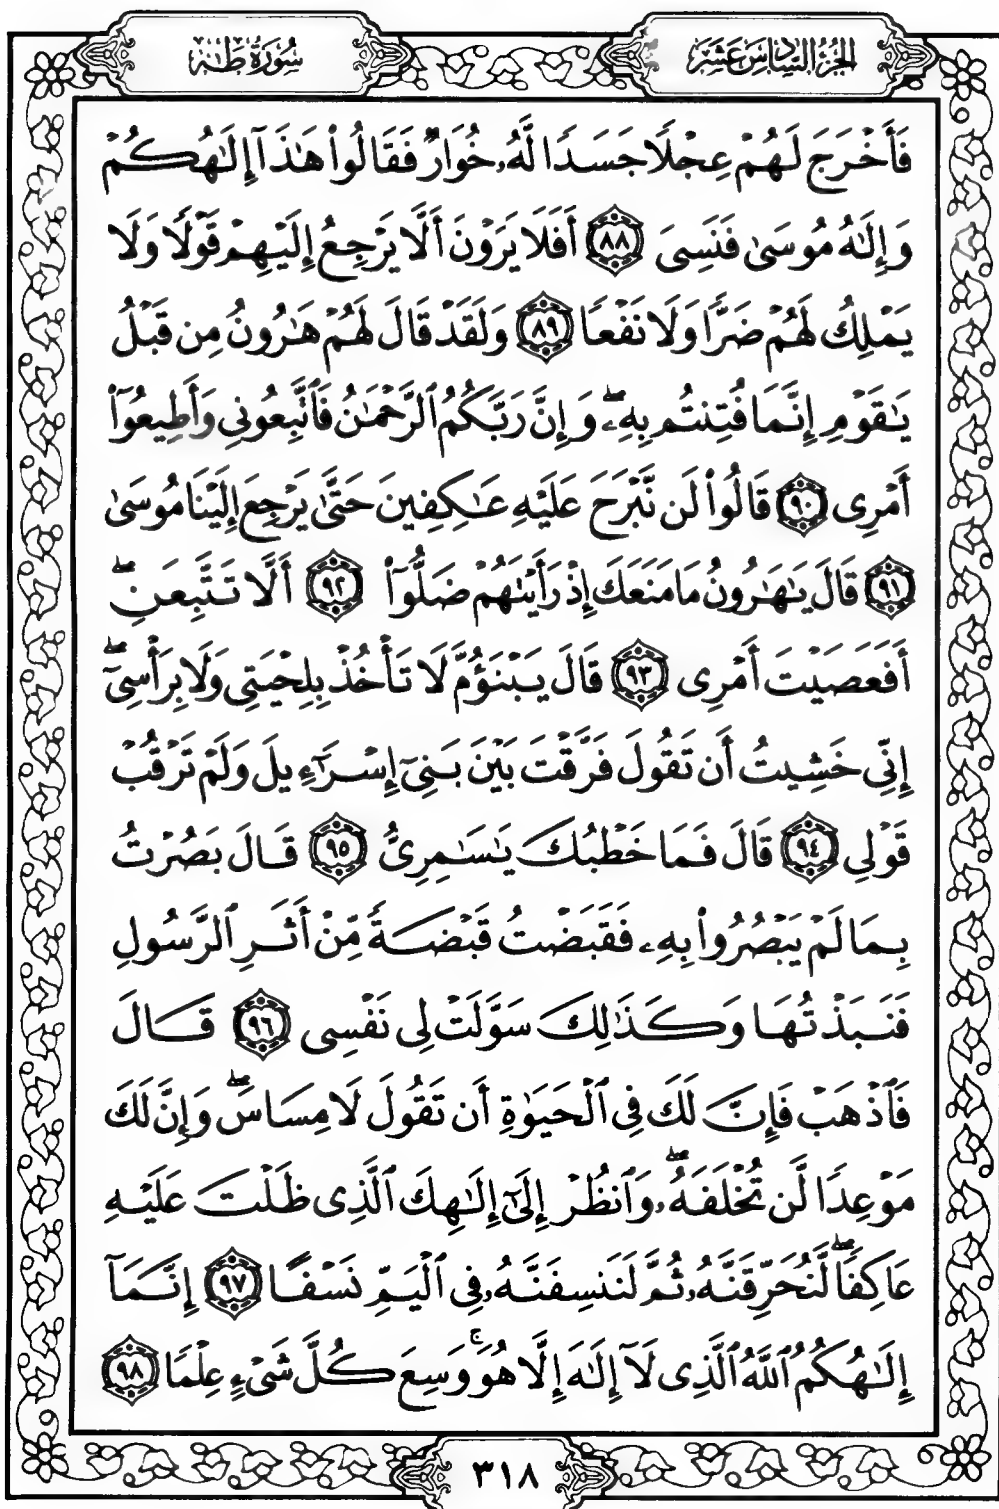 الجزء السادس عشر
سورة طه
فَأَخْرَجَ لَهُمْ عِجْلًا جَسَدًا لَّهُۥ خُوَارٌ فَقَالُوا۟ هَـٰذَآ إِلَـٰهُكُمْ
وَإِلَـٰهُ مُوسَىٰ فَنَسِىَ ٨٨ أَفَلَا يَرَوْنَ أَلَّا يَرْجِعُ إِلَيْهِمْ قَوْلًا وَلَا
يَمْلِكُ لَهُمْ ضَرًّا وَلَا نَفْعًا ٨٩ وَلَقَدْ قَالَ لَهُمْ هَـٰرُونُ مِن قَبْلُ
يَـٰقَوْمِ إِنَّمَا فُتِنتُم بِهِۦۖ وَإِنَّ رَبَّكُمُ ٱلرَّحْمَـٰنُ فَٱتَّبِعُونِى وَأَطِيعُوٓا۟
أَمْرِى ٩٠ قَالُوا۟ لَن نَّبْرَحَ عَلَيْهِ عَـٰكِفِينَ حَتَّىٰ يَرْجِعَ إِلَيْنَا مُوسَىٰ
٩١ قَالَ يَـٰهَـٰرُونُ مَا مَنَعَكَ إِذْ رَأَيْتَهُمْ ضَلُّوٓا۟ ٩٢ أَلَّا تَتَّبِعَنِۖ
أَفَعَصَيْتَ أَمْرِى ٩٣ قَالَ يَبْنَؤُمَّ لَا تَأْخُذْ بِلِحْيَتِى وَلَا بِرَأْسِىٓۖ
إِنِّى خَشِيتُ أَن تَقُولَ فَرَّقْتَ بَيْنَ بَنِىٓ إِسْرَٰٓءِيلَ وَلَمْ تَرْقُبْ
قَوْلِى ٩٤ قَالَ فَمَا خَطْبُكَ يَـٰسَـٰمِرِىُّ ٩٥ قَالَ بَصُرْتُ
بِمَا لَمْ يَبْصُرُوا۟ بِهِۦ فَقَبَضْتُ قَبْضَةً مِّنْ أَثَرِ ٱلرَّسُولِ
فَنَبَذْتُهَا وَكَذَٰلِكَ سَوَّلَتْ لِى نَفْسِى ٩٦ قَالَ
فَٱذْهَبْ فَإِنَّ لَكَ فِى ٱلْحَيَوٰةِ أَن تَقُولَ لَا مِسَاسَۖ وَإِنَّ لَكَ
مَوْعِدًا لَّن تُخْلَفَهُۥۖ وَٱنظُرْ إِلَىٰٓ إِلَـٰهِكَ ٱلَّذِى ظَلْتَ عَلَيْهِ
عَاكِفًاۖ لَّنُحَرِّقَنَّهُۥ ثُمَّ لَنَنسِفَنَّهُۥ فِى ٱلْيَمِّ نَسْفًا ٩٧ إِنَّمَآ
إِلَـٰهُكُمُ ٱللَّهُ ٱلَّذِى لَآ إِلَـٰهَ إِلَّا هُوَۚ وَسِعَ كُلَّ شَىْءٍ عِلْمًا ٩٨
٣١٨